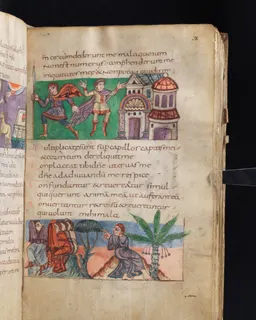 circumdederunt me mala quorum
non est numerus conphenderunt me
iniquitates meę & non potui ut uiderem
sunt sup capillos capitis mei
& cor meum dereliquit me
Conplaceat tibi dne ut eruas me
dne ad adiuuandū me respice
Confundantur & reuereantur simul
qui querunt animā meā ut auferant eā
Conuertantur retrorsū & reuereantur
qui uolunt mihi mala